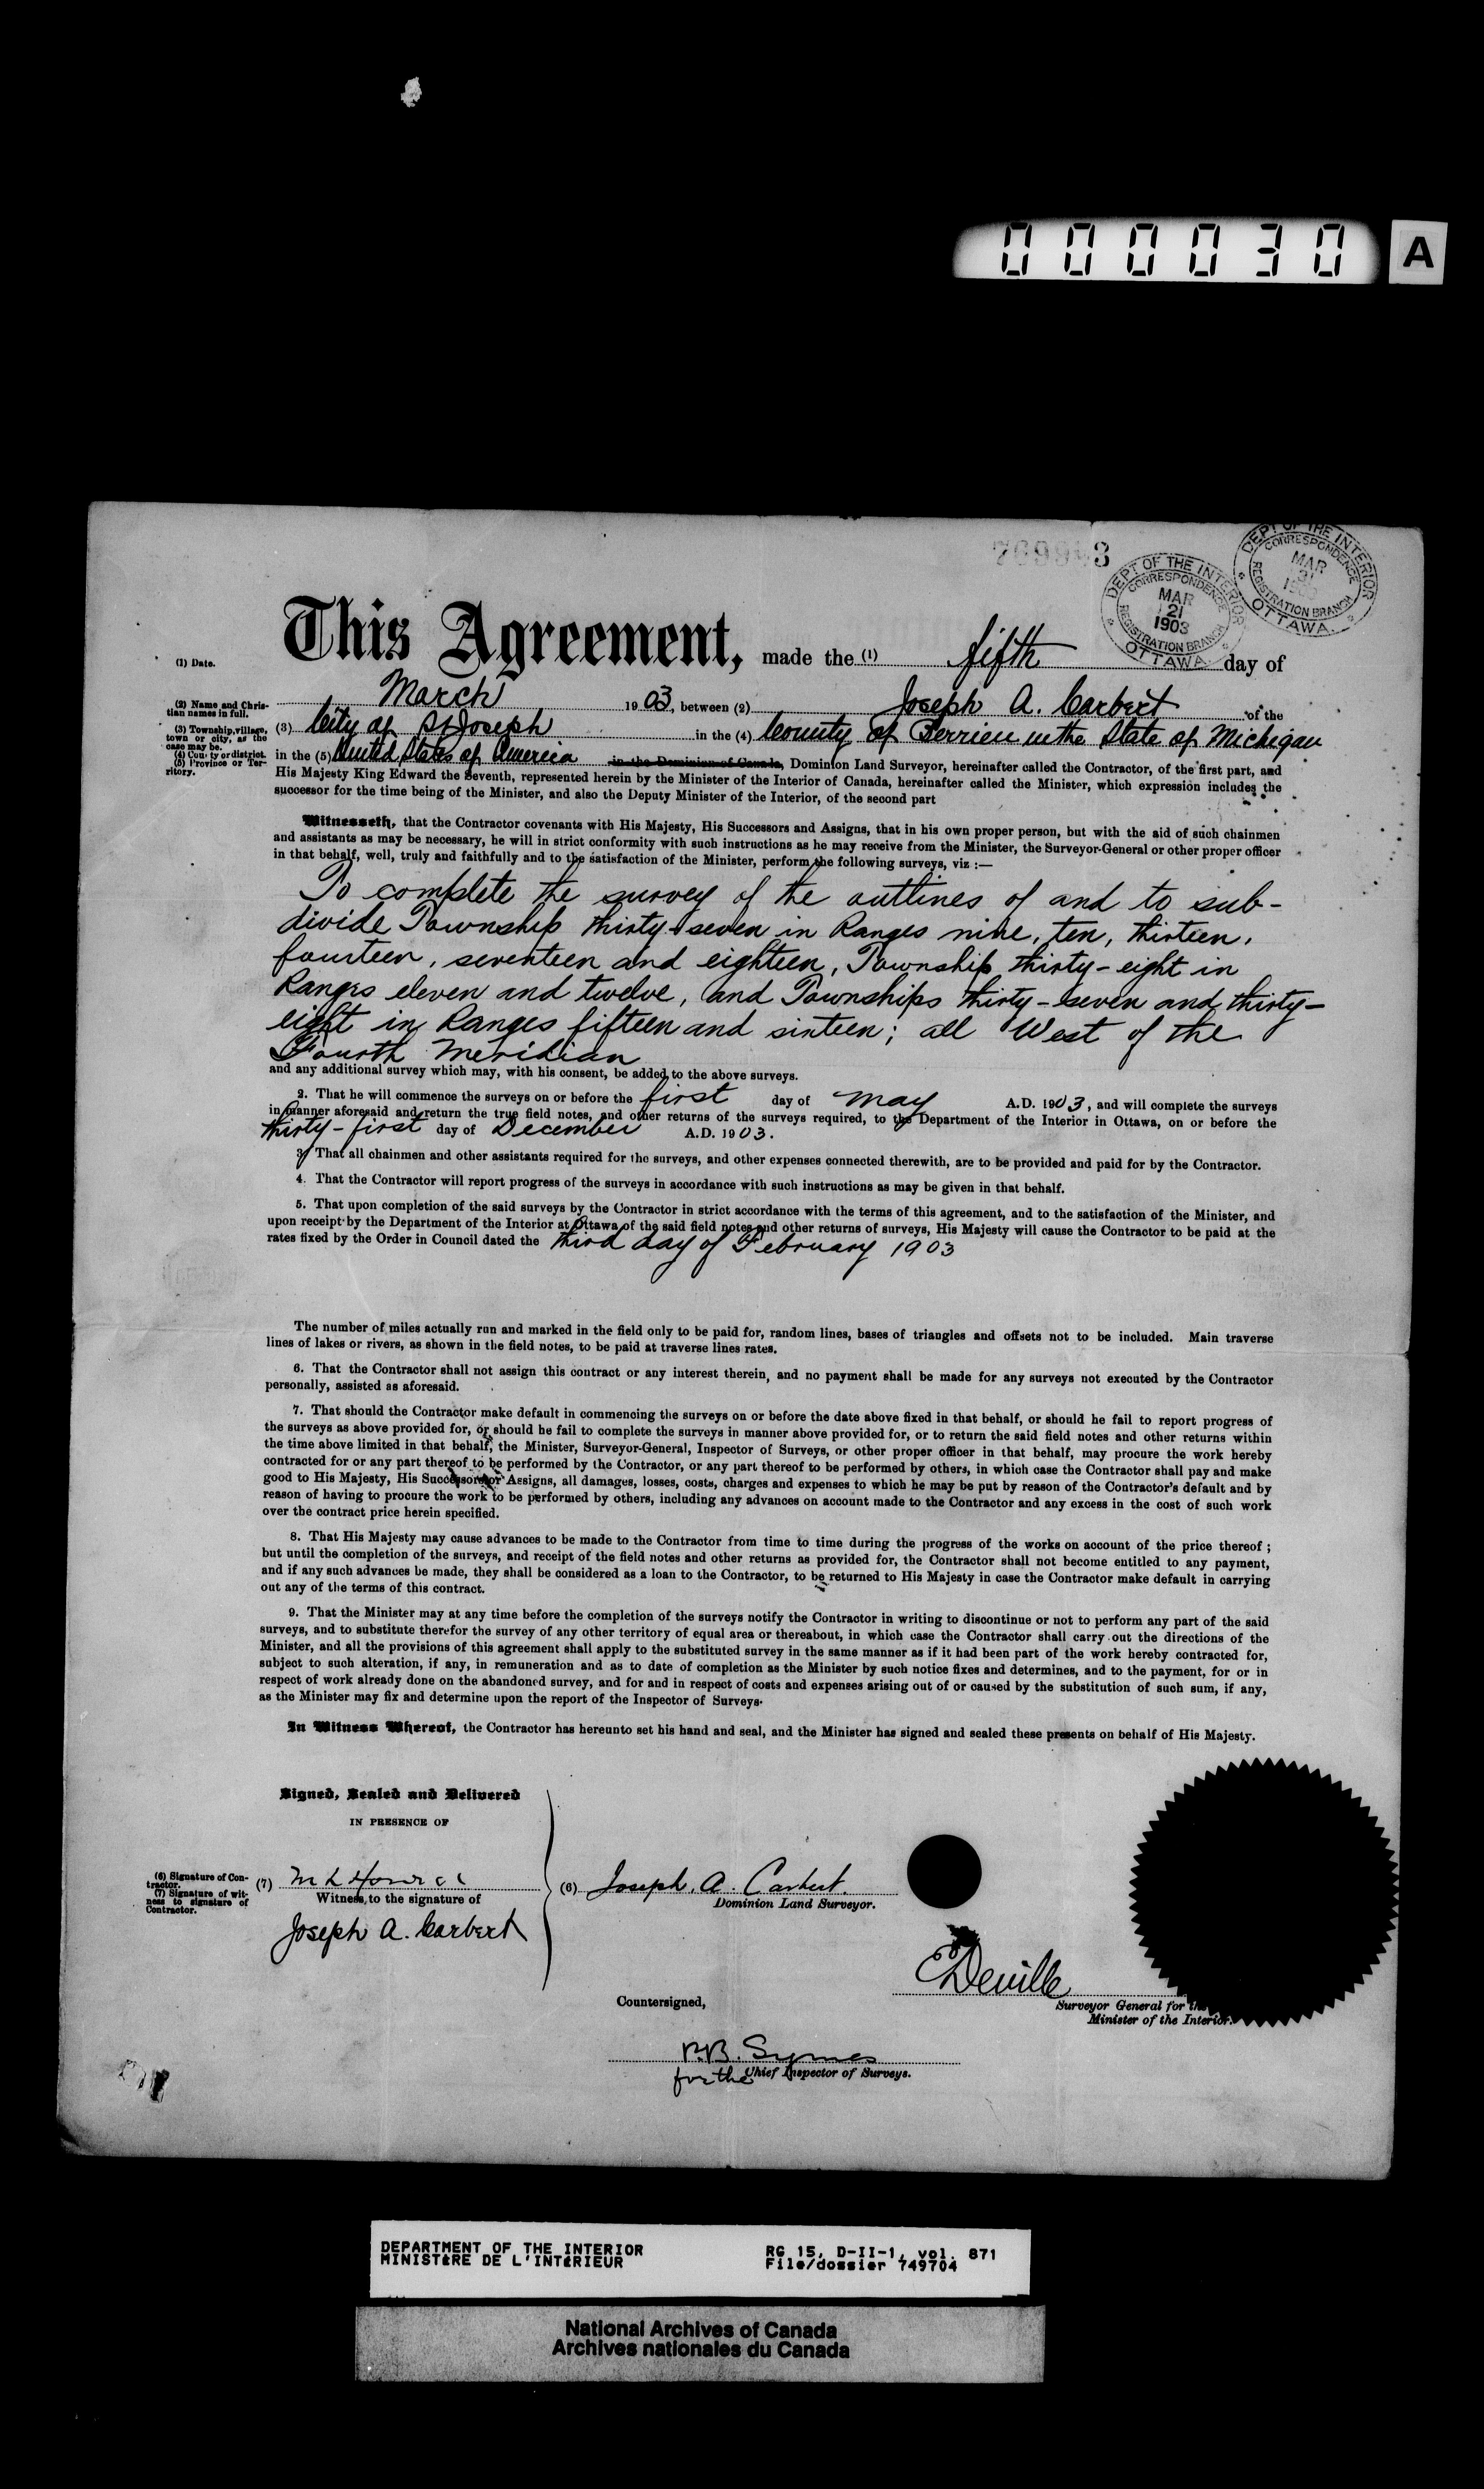 000030 A
DEPT OF THE INTERIOR
CORRESPONDENCE
MAR
21
1903
REGISTRATION BRANCH
OTTAWA
DEPT OF THE INTERIOR
CORRESPONDENCE
MAR
REGISTRATION BRANCH
OTTAWA.
(1) Date.
This Agreement, made the (1) fifth day of
(2) Name and Christian names in full.
March 1903, between (2) Joseph A. Carbert of the
(3) Township, village, town or city, as the case may be.
(3) City of St Joseph in the (4) County of Berrien in the State of Michigan
(4) County or district.
(5) Province or Territory.
in the (5) United States of America in the Dominion of Canada, Dominion Land Surveyor, hereinafter called the Contractor, of the first part, and
His Majesty King Edward the Seventh, represented herein by the Minister of the Interior of Canada, hereinafter called the Minister, which expression includes the
successor for the time being of the Minister, and also the Deputy Minister of the Interior, of the second part
Witnesseth, that the Contractor covenants with His Majesty, His Successors and Assigns, that in his own proper person, but with the aid of such chainmen
and assistants as may be necessary, he will in strict conformity with such instructions as he may receive from the Minister, the Surveyor-General or other proper officer
in that behalf, well, truly and faithfully and to the satisfaction of the Minister, perform the following surveys, viz :—
To complete the survey of the outlines of and to sub-
divide Township thirty-seven in Ranges nine, ten, thirteen,
fourteen, seventeen and eighteen, Township thirty-eight in
Ranges eleven and twelve, and Townships thirty-seven and thirty-
eight in Ranges fifteen and sixteen; all West of the
Fourth Meridian
and any additional survey which may, with his consent, be added to the above surveys.
2. That he will commence the surveys on or before the first day of May A.D. 1903, and will complete the surveys
in manner aforesaid and return the true field notes, and other returns of the surveys required, to the Department of the Interior in Ottawa, on or before the
thirty-first day of December A.D. 1903.
3. That all chainmen and other assistants required for the surveys, and other expenses connected therewith, are to be provided and paid for by the Contractor.
4. That the Contractor will report progress of the surveys in accordance with such instructions as may be given in that behalf.
5. That upon completion of the said surveys by the Contractor in strict accordance with the terms of this agreement, and to the satisfaction of the Minister, and
upon receipt by the Department of the Interior at Ottawa of the said field notes and other returns of surveys, His Majesty will cause the Contractor to be paid at the
rates fixed by the Order in Council dated the third day of February 1903
The number of miles actually run and marked in the field only to be paid for, random lines, bases of triangles and offsets not to be included. Main traverse
lines of lakes or rivers, as shown in the field notes, to be paid at traverse lines rates.
6. That the Contractor shall not assign this contract or any interest therein, and no payment shall be made for any surveys not executed by the Contractor
personally, assisted as aforesaid.
7. That should the Contractor make default in commencing the surveys on or before the date above fixed in that behalf, or should he fail to report progress of
the surveys as above provided for, or should he fail to complete the surveys in manner above provided for, or to return the said field notes and other returns within
the time above limited in that behalf, the Minister, Surveyor-General, Inspector of Surveys, or other proper officer in that behalf, may procure the work hereby
contracted for or any part thereof to be performed by the Contractor, or any part thereof to be performed by others, in which case the Contractor shall pay and make
good to His Majesty, His Successors or Assigns, all damages, losses, costs, charges and expenses to which he may be put by reason of the Contractor's default and by
reason of having to procure the work to be performed by others, including any advances on account made to the Contractor and any excess in the cost of such work
over the contract price herein specified.
8. That His Majesty may cause advances to be made to the Contractor from time to time during the progress of the works on account of the price thereof ;
but until the completion of the surveys, and receipt of the field notes and other returns as provided for, the Contractor shall not become entitled to any payment,
and if any such advances be made, they shall be considered as a loan to the Contractor, to be returned to His Majesty in case the Contractor make default in carrying
out any of the terms of this contract.
9. That the Minister may at any time before the completion of the surveys notify the Contractor in writing to discontinue or not to perform any part of the said
surveys, and to substitute therefor the survey of any other territory of equal area or thereabout, in which case the Contractor shall carry out the directions of the
Minister, and all the provisions of this agreement shall apply to the substituted survey in the same manner as if it had been part of the work hereby contracted for,
subject to such alteration, if any, in remuneration and as to date of completion as the Minister by such notice fixes and determines, and to the payment, for or in
respect of work already done on the abandoned survey, and for and in respect of costs and expenses arising out of or caused by the substitution of such sum, if any,
as the Minister may fix and determine upon the report of the Inspector of Surveys.
In Witness Whereof, the Contractor has hereunto set his hand and seal, and the Minister has signed and sealed these presents on behalf of His Majesty.
Signed, Sealed and Delivered
IN PRESENCE OF
(6) Signature of Contractor.
(7) Signature of witness to signature of Contractor.
(7)
Witness to the signature of
Joseph A. Carbert
(6) Joseph. A. Carbert.
Dominion Land Surveyor.
E Deville
Surveyor General for the
Minister of the Interior.
Countersigned,
P.B. Symes
for the Chief Inspector of Surveys.
DEPARTMENT OF THE INTERIOR
MINISTÈRE DE L'INTÉRIEUR
RG 15, D-II-1, vol. 871
File/dossier 749704
National Archives of Canada
Archives nationales du Canada